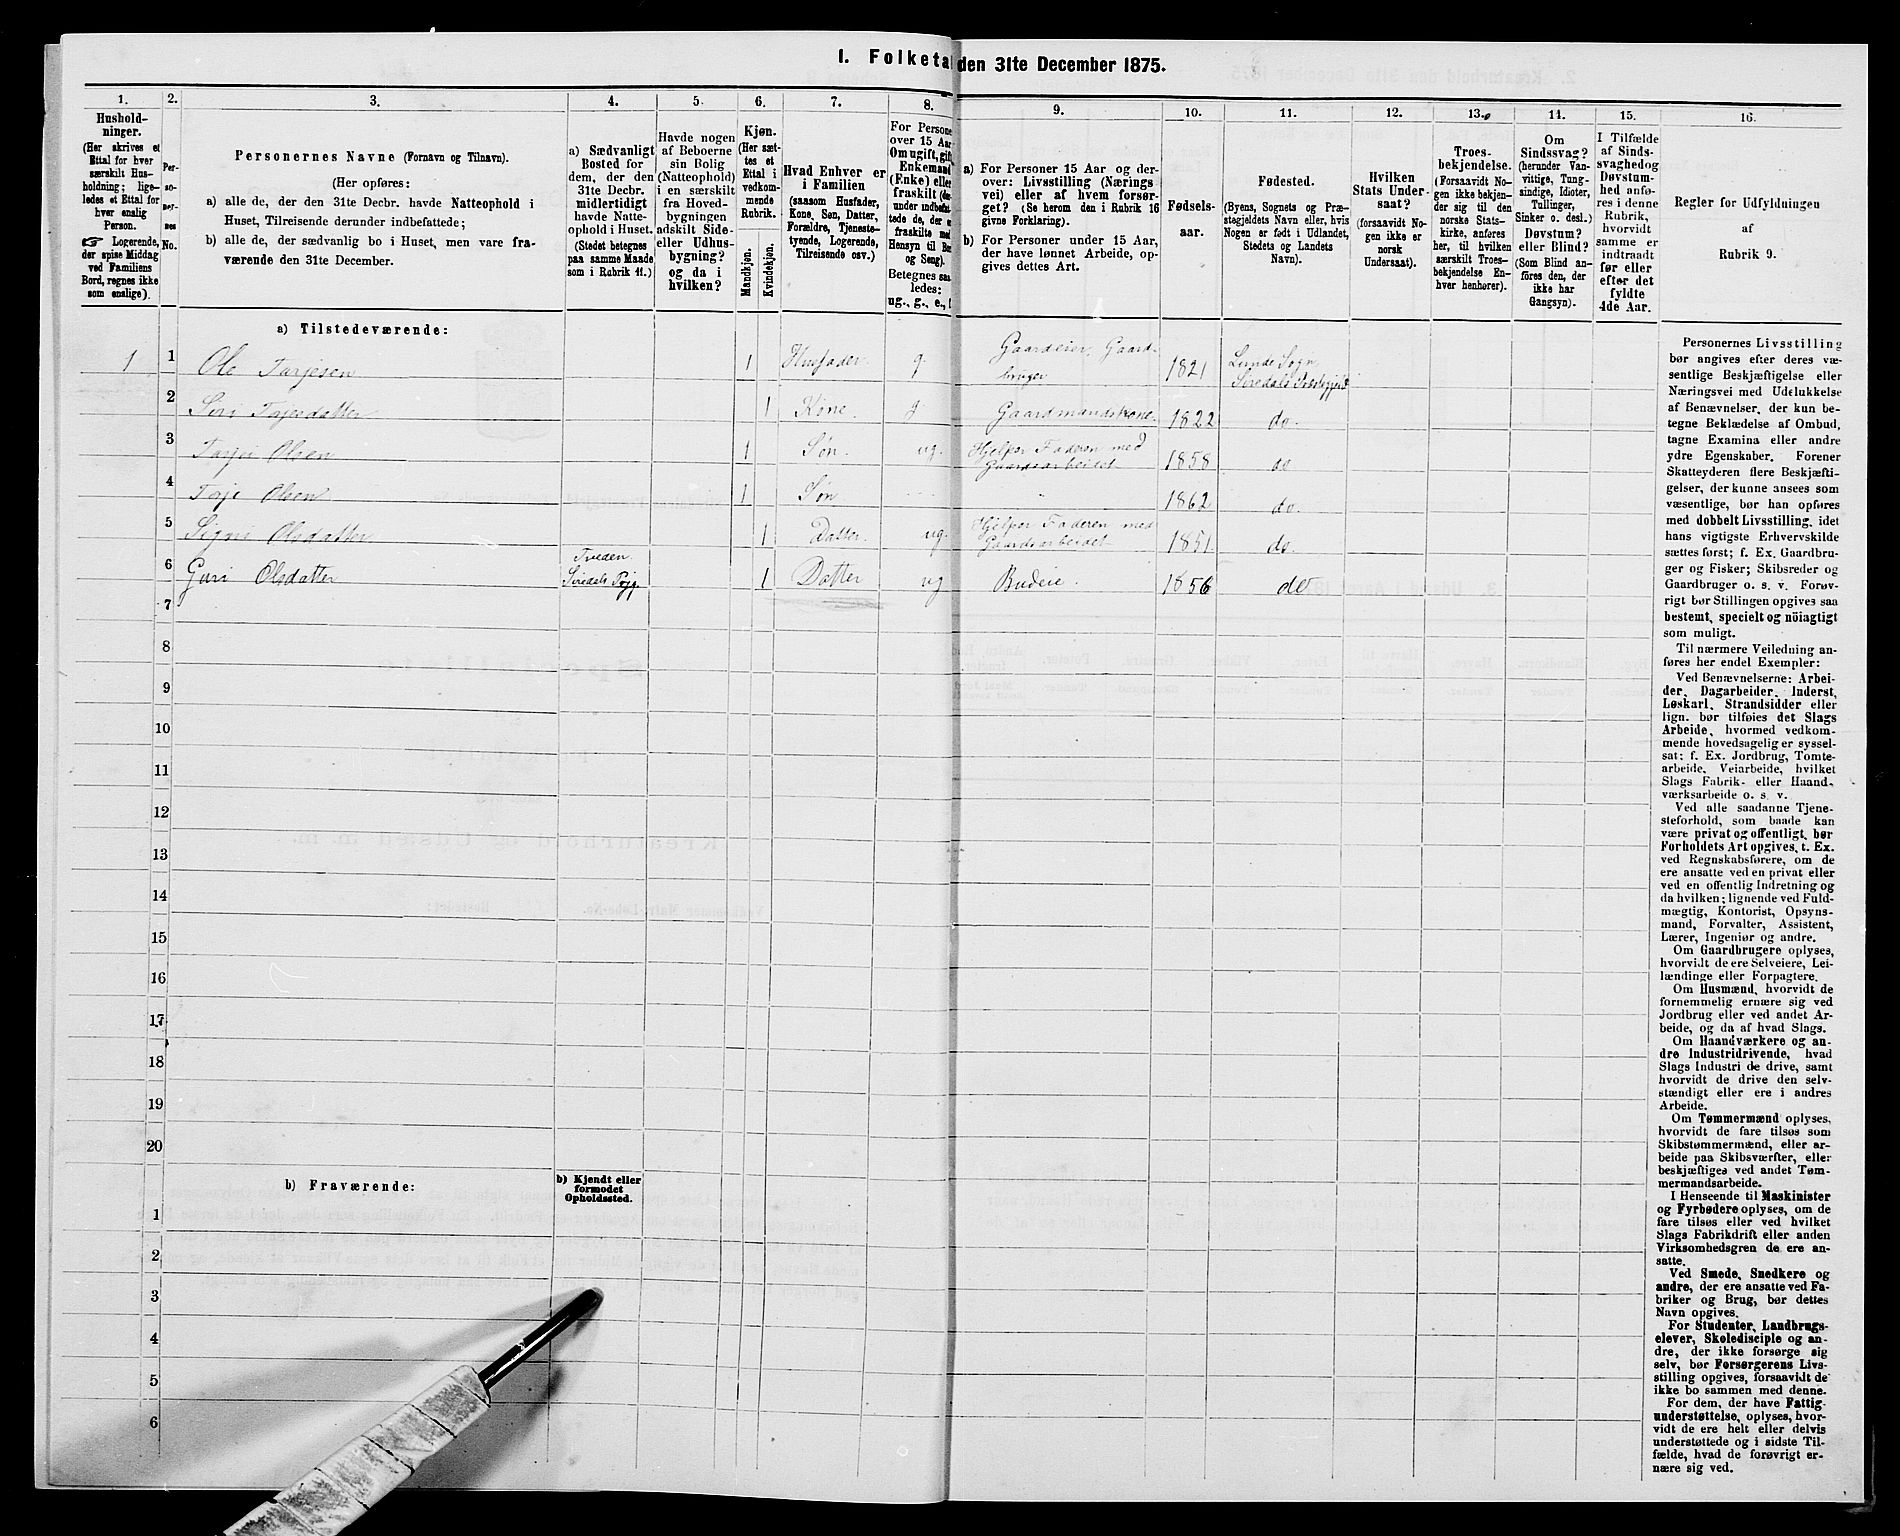 I. Folketa den 31te December 1875.
1.
Hushold-
ninger.
(Her skrives et
Ettal for hver
særskilt Hus-
holdning; lige-
ledes et Ettal for
hver enslig
Person.
☞ Logerende,
der spise Middag
ved Familiens
Bord, regnes ikke
som enslige).
2.
Per-
so-
ner-
nes
No.
3.
Personernes Navne (Fornavn og Tilnavn).
(Her opføres:
a) alle de, der den 31te Decbr. havde Natteophold i
Huset, Tilreisende derunder indbefattede;
b) alle de, der sædvanlig bo i Huset, men vare fra-
værende den 31te December.
4.
a) Sædvanligt
Bosted for
dem, der den
31te Decbr.
midlertidigt
havde Natte-
ophold i Huset.
(Stedet betegnes
paa samme Maade
som i Rubrik 11.)
5.
Havde nogen
af Beboerne
sin Bolig
(Natteophold)
i en særskilt
fra Hoved-
bygningen
adskilt Side-
eller Udhus-
bygning?
og da i
hvilken?
6.
Kjøn.
(Her sæt-
tes et
Ettal i
vedkom-
mende
Rubrik.
Mandkjøn.
Kvindekjøn.
7.
Hvad Enhver er
i Familien
(saasom Husfader,
Kone, Søn, Datter,
Forældre, Tjeneste-
tyende, Logerende,
Tilreisende osv.)
8.
For Persone
over 15 Aar
Om ugift, gif
Enkemand
(Enke) elle
fraskilt (der-
under indbefat-
tede de, der e
fraskilte med
Hensyn til Bo
og Seng).
Betegnes saa-
ledes:
ug., g., e.,
9.
a) For Personer 15 Aar og der-
over: Livsstilling (Nærings
vei) eller af hvem forsør-
get? (Se herom den i Rubrik 16
givne Forklaring).
b) For Personer under 15 Aar,
der have lønnet Arbeide, op-
gives dettes Art.
10.
Fødsels-
aar.
11.
Fødested.
(Byens, Sognets og Præ-
stegjeldets Navn eller, hvis
Nogen er født i Udlandet,
Stedets og Landets
Navn).
12.
Hvilken
Stats Under-
saat?
(forsaavidt No-
gen ikke er
norsk
Undersaat).
13.
Troes-
bekjendelse.
(Forsaavidt No-
gen ikke bekjen-
der sig til den
norske Stats-
kirke, anføres
her, til hvilken
særskilt Troes-
bekjendelse En-
hver henhører).
14.
Om
Sindssvag?
(herunder Van-
vittige, Tung-
sindige, Idioter,
Tullinger,
Sinker o. desl.)
Døvstum?
eller Blind?
(Som Blind an-
føres den, der
ikke har
Gangsyn).
15.
I Tilfælde
af Sinds-
svaghed og
Døvstum-
hed anfø-
res i denne
Rubrik,
hvorvidt
samme er
indtraadt
før eller
efter det
fyldte
4de Aar.
16.
Regler for Udfyldningen
af
Rubrik 9.
a) Tilstedeværende:
1 1 Ole Tarjesen 1 Husfader g. Gaardeier, Gaard-
bruger 1821 Lunde Sogn,
Siredals Præstegjeld
2 Siri Tajesdatter 1 Kone. g. Gaardmandskone. 1822 do.
3 Tarjei Olsen 1 Søn. ug. Hjelper Faderen med
Gaardsarbeidet 1858 do
4 Taje Olsen 1 Søn " 1862 do.
5 Signi Olsdatter 1 Datter. ug. Hjelper Faderen med
Gaardsarbeidet 1851. do.
6 Guri Olsdatter Tveden.
Siredals Pgj 1 Datter ug Budeie. 1856 do
7
8
9
10
11
12
13
14
15
16
17
18
19
20
b) Fraværende:
b) Kjendt eller
formodet
Opholdssted.
1
2
3
4
5
6
Personernes Livsstilling
bør angives efter deres væ-
sentlige Beskjæftigelse eller
Næringsvei med Udelukkelse
af Benævnelser, der kun be-
tegne Beklædelse af Ombud,
tagne Examina eller andre
ydre Egenskaber. Forener
Skatteyderen flere Beskjæfti-
gelser, der kunne ansees som
væsentlige, bør han opføres
med dobbelt Livsstilling, idet
hans vigtigste Erhvervskilde
sættes forst; f. Ex. Gaardbru-
ger og Fisker; Skibsreder og
Gaardbruger o. s. v. Forøv-
rigt bør Stillingen opgives saa
bestemt, specielt og nöiagtigt
som muligt.
Til nærmere Veiledning an-
føres her endel Exempler:
Ved Benævnelserne: Arbei-
der, Dagarbeider, Inderst,
Løskarl, Strandsidder eller
lign. bør tilføies det Slags
Arbeide, hvormed vedkom-
mende hovedsagelig er syssel-
sat; f. Ex. Jordbrug, Tomte-
arbeide, Veiarbeide, hvilket
Slags Fabrik- eller Haand-
værksarbeide o. s. v.
Ved alle saadanne Tjene-
steforhold, som baade kan
være privat og offentligt, bør
Forholdets Art opgives, t. Ex.
ved Regnskabsførere, om de
ere ansatte ved en privat eller
ved en offentlig Indretning og
da hvilken; lignende ved Fuld-
mægtig, Kontorist, Opsyns-
mand, Forvalter, Assistent,
Lærer, Ingeniør og andre.
Om Gaardbrugere oplyses,
hvorvidt de ere Selveiere, Lei-
lændinge eller Forpagtere.
Om Husmænd, hvorvidt de
fornemmelig ernære sig ved
Jordbrug eller ved andet Ar-
beide, og da af hvad Slags.
Om Haandværkere og an-
dre Industridrivende, hvad
Slags Industri de drive, samt
hvorvidt de drive den selv-
stændigt eller ere i andres
Arbeide.
Om Tømmermænd oplyses,
hvorvidt de fare tilsøs som
Skibstømmermænd, eller ar-
beide paa Skibsværfter, eller
beskjæftiges ved andet Tøm-
mermandsarbeide.
I Henseende til Maskinister
og Fyrbødere oplyses, om de
fare tilsøs eller ved hvilket
Slags Fabrikdrift eller anden
Virksomhedsgren de ere an-
satte.
Ved Smede, Snedkere og
andre, der ere ansatte ved Fa-
briker og Brug, bør dettes
Navn opgives.
For Studenter, Landbrugs-
elever, Skoledisciple og an-
dre, der ikke forsørge sig
selv, bør Forsørgerens Livs-
stilling opgives, forsaavidt de
ikke bo sammen med denne.
For dem, der have Fattig-
understøttelse, oplyses, hvor-
vidt de ere helt eller delvis
understøttede og i sidste Til-
fælde, hvad de forøvrigt er-
nære sig ved.